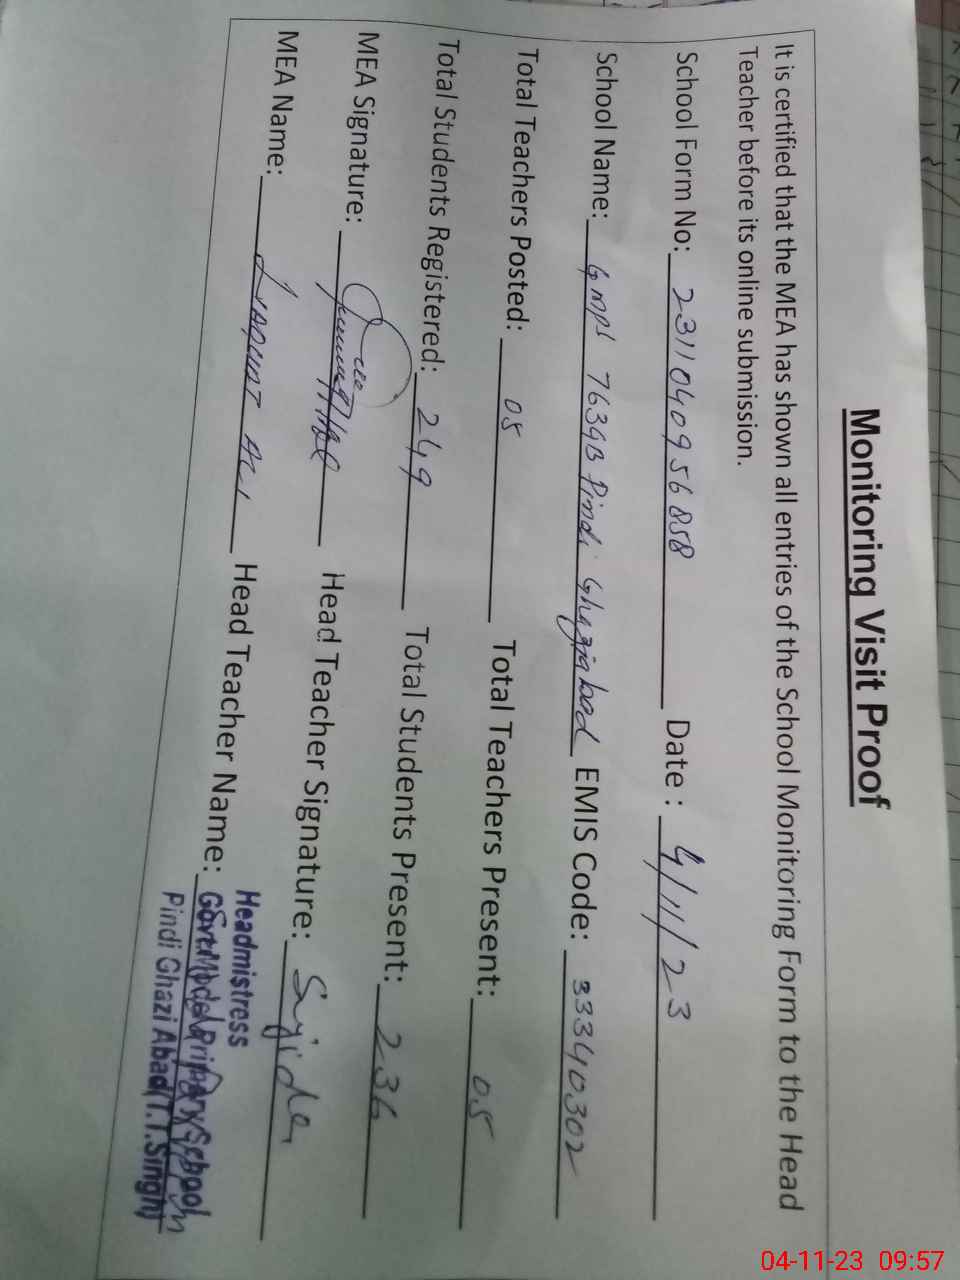 Monitoring Visit Proof
It is certified that the MEA has shown all entries of the School Monitoring Form to the Head
Teacher before its online submission.
School Form No: 231104095 6858 Date : 4/11/23
School Name: GMPS 763GB Pindi Ghaziabad EMIS Code: 33340302
Total Teachers Posted: 05 Total Teachers Present: 05
Total Students Registered: 249 Total Students Present: 236
MEA Signature: Head Teacher Signature: Sajida
MEA Name: Liaquat Ali Head Teacher Name:
Headmistress
Govt.Model Primary School
Pindi Ghazi Abad(T.T.Singh)
04-11-23 09:57